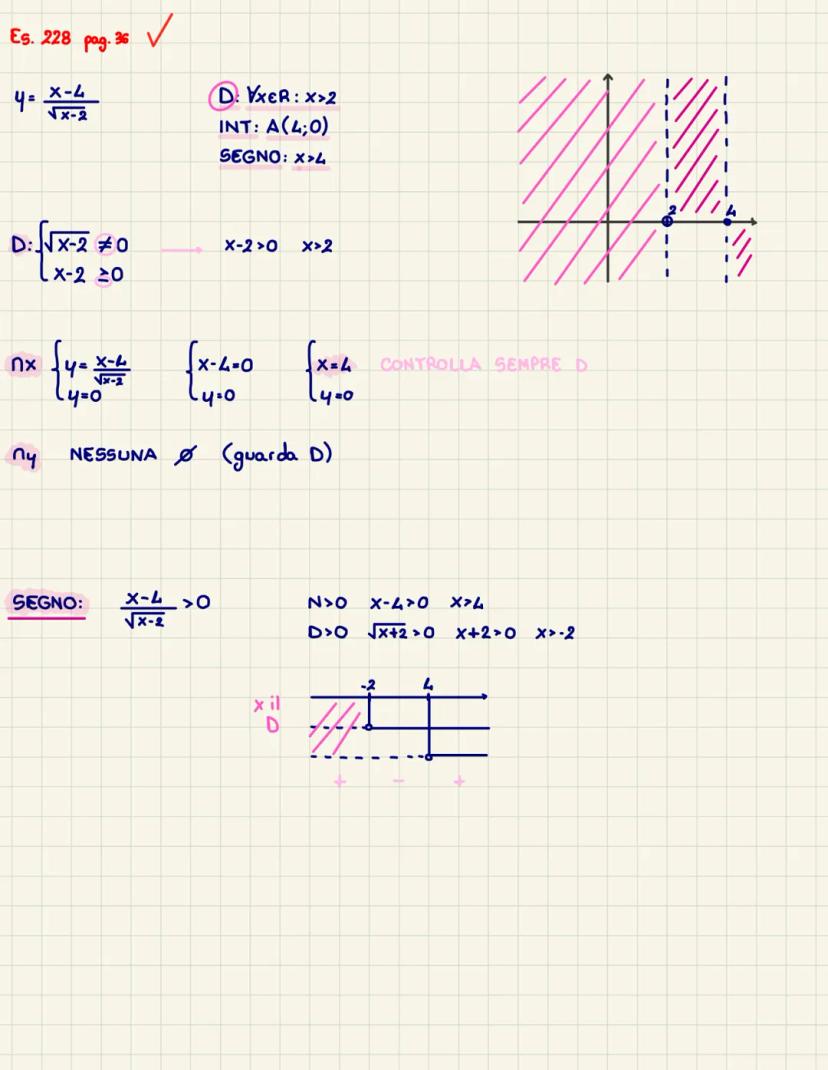 Es. 228 pag. 36 ✓
y = (x-4)/√(x-2)
D: ∀x∈R: x>2
INT: A(4;0)
SEGNO: x>4
2 4
D: { √(x-2) ≠0 → x-2>0 x>2
x-2 ≥0
nx { y = (x-4)/√(x-2) { x-4=0 { x=4 CONTROLLA SEMPRE D
y=0 y=0 y=0
ny NESSUNA ∅ (guarda D)
SEGNO: (x-4)/√(x-2) >0
N>0 x-4>0 x>4
D>0 √(x+2) >0 x+2>0 x>-2
-2 4
x il
D
+ - +